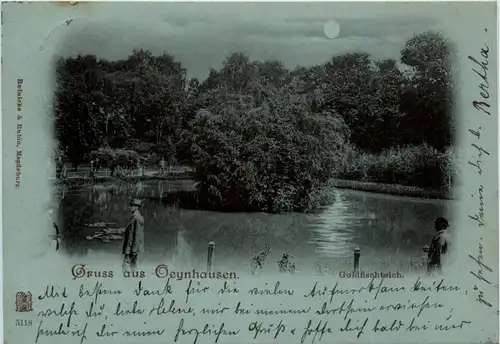 Reinicke & Rubin, Magdeburg.
Gruss aus Oeynhausen.
Goldfischteich.
5118
Mit besten Dank für die vielen Aufmerksamkeiten,
welche Du, liebe Helene, mir bei meinem Dortsein erwiesen,
sende ich Dir einen herzlichen Gruß & hoffe Dich bald bei mir
zu sehen. Deine Dich
Bertha.